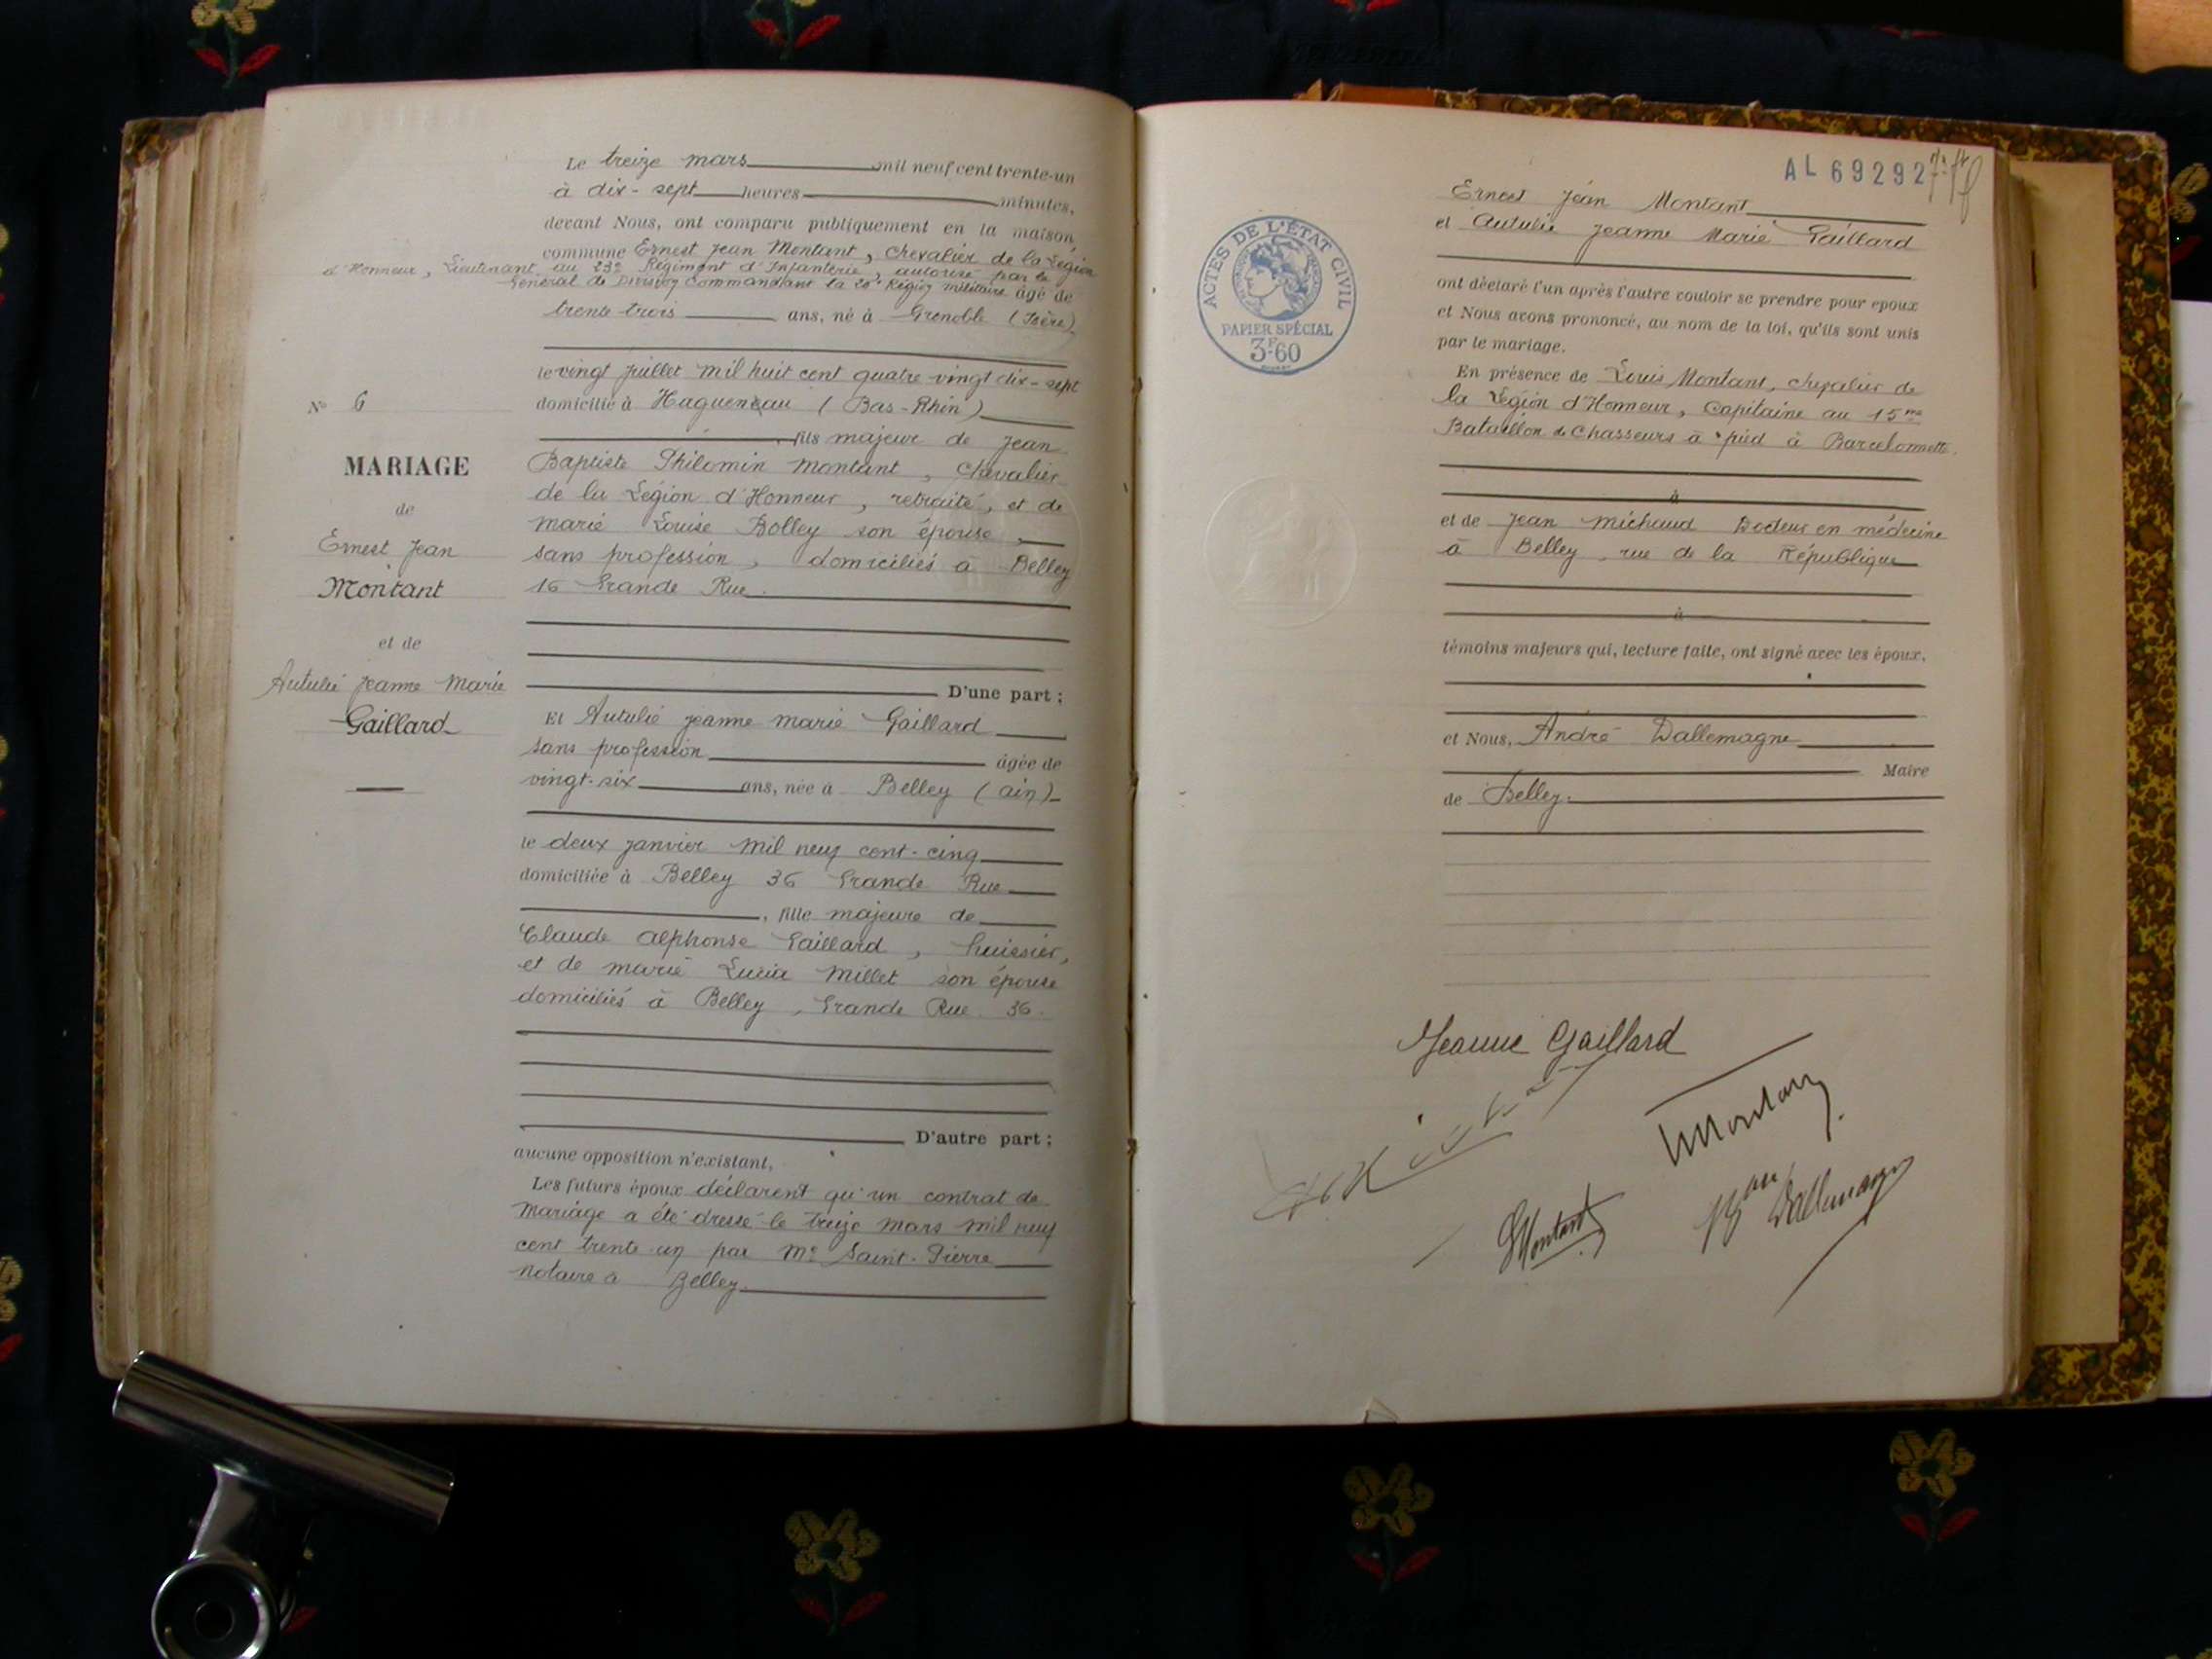 Le treize mars mil neuf cent trente-un
à dix-sept heures minutes,
devant Nous, ont comparu publiquement en la maison
commune Ernest Jean Montant, chevalier de la Légion
d'Honneur, Lieutenant au 23e Régiment d'Infanterie, autorisé par le
Général de Division Commandant la 20e Région militaire âgé de
trente trois ans, né à Grenoble (Isère)
le vingt juillet mil huit cent quatre vingt dix-sept
domicilié à Haguenau (Bas-Rhin)
, fils majeur de Jean
Baptiste Philomin Montant, Chevalier
de la Légion d'Honneur, retraité, et de
Marie Louise Bolley son épouse,
sans profession, domiciliés à Belley
16 Grande Rue.
D'une part ;
Et Autulie Jeanne Marie Gaillard
sans profession âgée de
vingt-six ans, née à Belley (Ain)
le deux janvier mil neuf cent-cinq
domiciliée à Belley 36 Grande Rue
, fille majeure de
Claude Alphonse Gaillard, huissier,
et de Marie Lucia Millet son épouse
domiciliés à Belley, Grande Rue 36.
D'autre part ;
aucune opposition n'existant,
Les futurs époux déclarent qu'un contrat de
mariage a été dressé le treize mars mil neuf
cent trente-un par Me Saint-Pierre
notaire à Belley.
N° 6
MARIAGE
de
Ernest Jean
Montant
et de
Autulie Jeanne Marie
Gaillard
AL 69292
ACTES DE L'ÉTAT CIVIL
PAPIER SPÉCIAL
3F60
Ernest Jean Montant
et Autulie Jeanne Marie Gaillard
ont déclaré l'un après l'autre vouloir se prendre pour époux
et Nous avons prononcé, au nom de la loi, qu'ils sont unis
par le mariage.
En présence de Louis Montant, chevalier de
la Légion d'Honneur, Capitaine au 15me
Bataillon de Chasseurs à pied à Barcelonnette.
à
et de Jean Michaud Docteur en médecine
à Belley, rue de la République
à
témoins majeurs qui, lecture faite, ont signé avec les époux,
et Nous, André Dallemagne
Maire
de Belley.
Jeanne Gaillard
Montant
Montant
Dallemagne